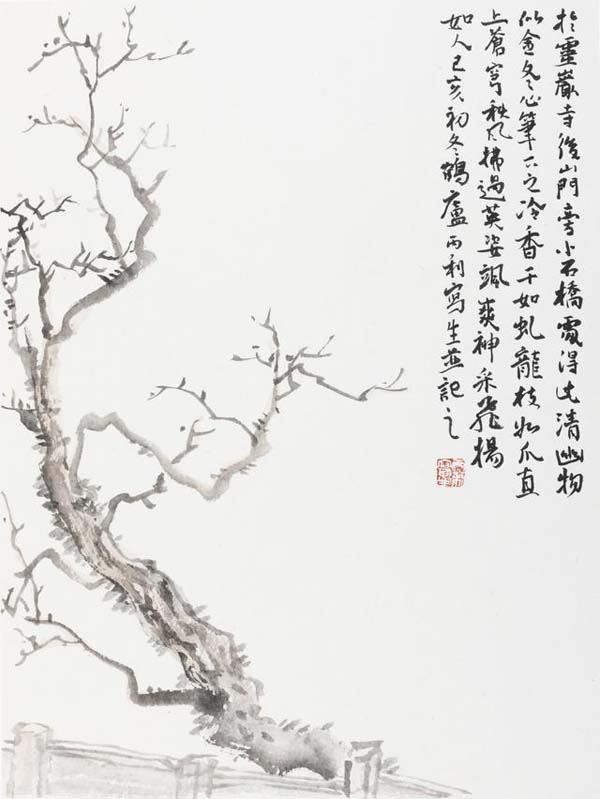 於靈巖寺後山門旁小石橋處得此清幽物
似金冬心筆下之冷香干如虬龍枝如爪直
上蒼穹秋風拂過英姿颯爽神采飛揚
如人己亥初冬鶴廬丙利寫生並記之